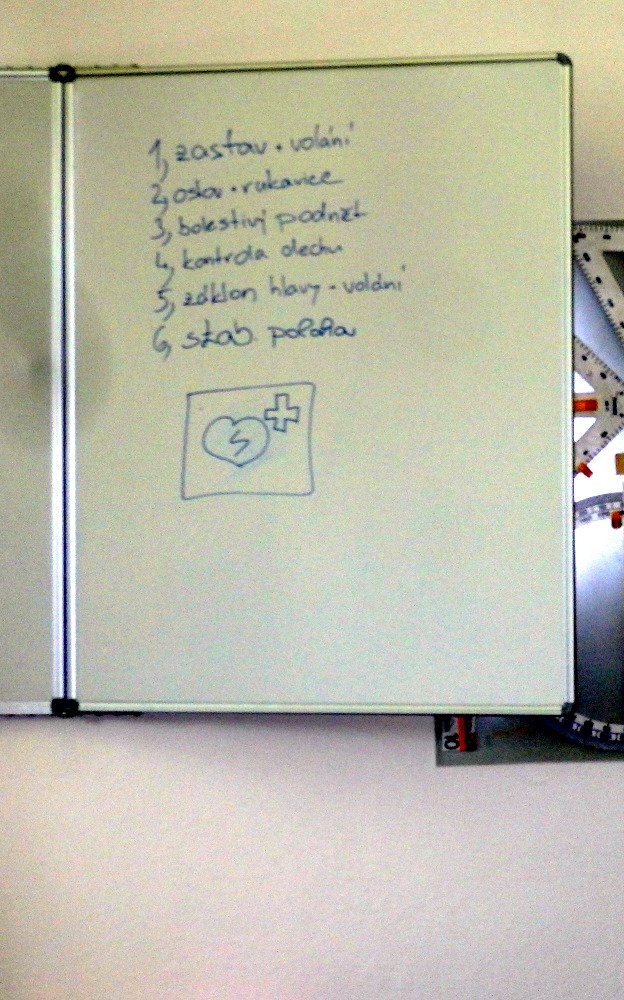 1, zastav • volání
2, oslov • rukavice
3, bolestivý podnět
4, kontrola dechu
5, záklon hlavy • volání
6, stab. poloha
10